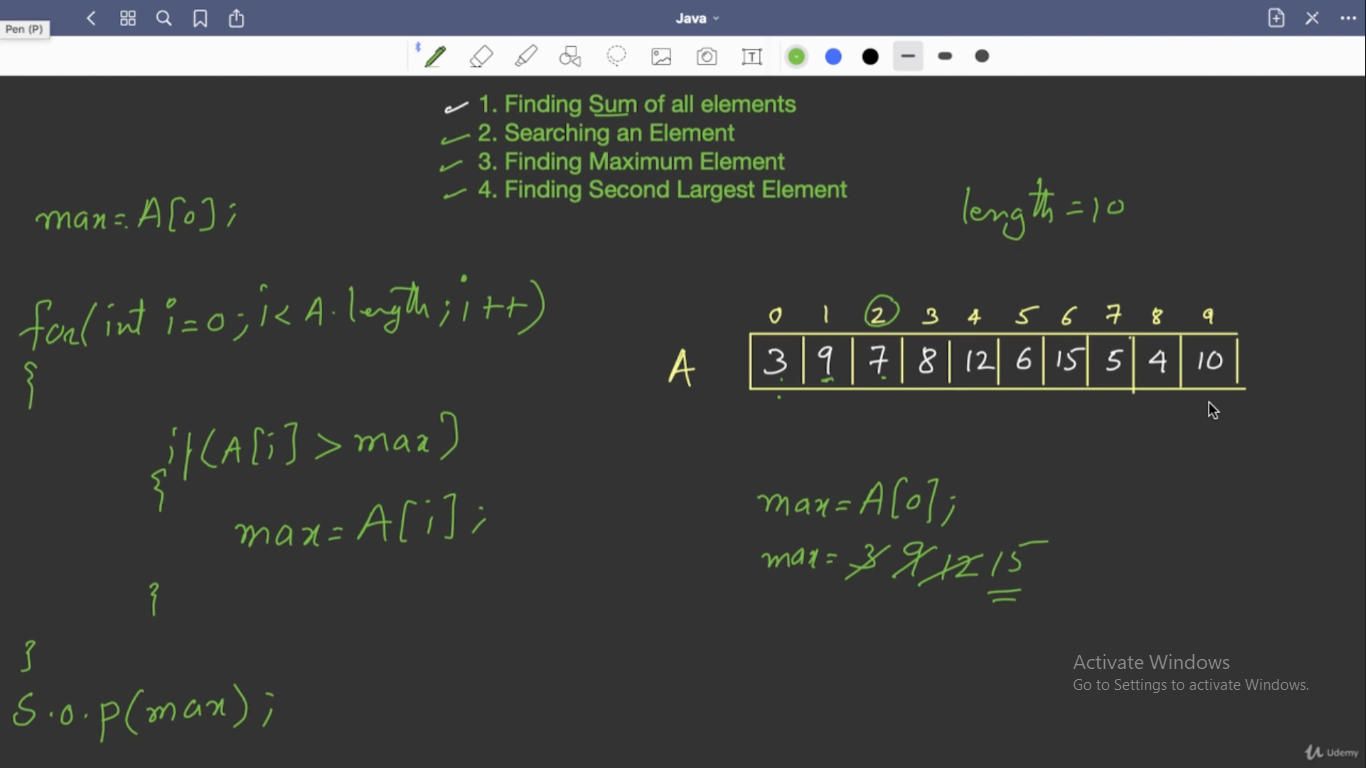 Java
Pen (P)
1. Finding Sum of all elements
2. Searching an Element
3. Finding Maximum Element
4. Finding Second Largest Element
max = A[0];
length = 10
for(int i=0; i< A.length; i++)
{
if(A[i] > max)
{
max = A[i];
}
}
S.o.p(max);
0 1 2 3 4 5 6 7 8 9
A 3 9 7 8 12 6 15 5 4 10
max = A[0];
max = 3 9 12 15
Activate Windows
Go to Settings to activate Windows.
Udemy